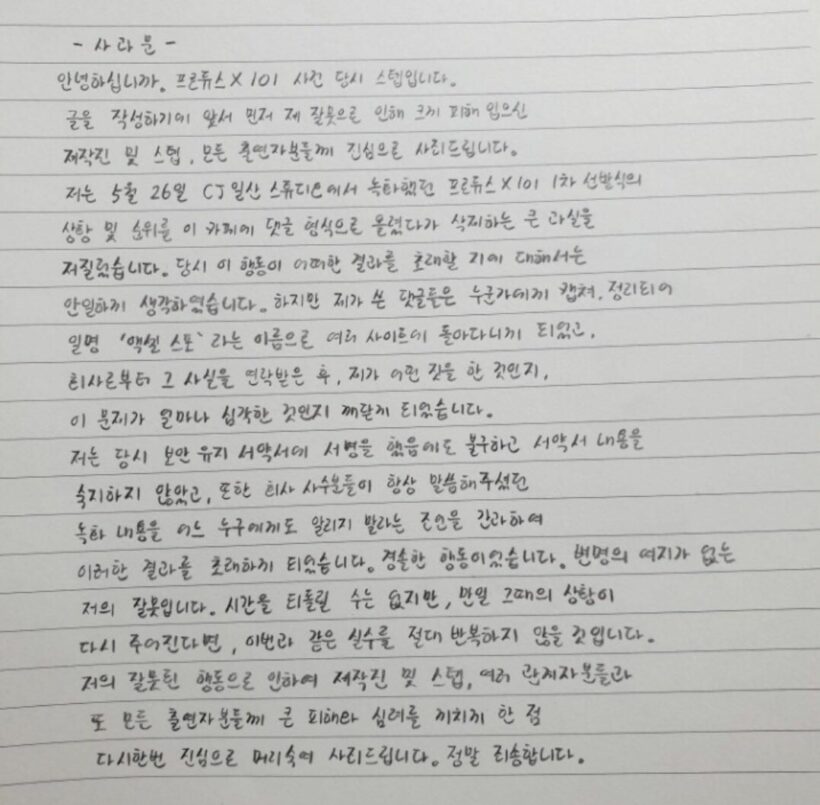 - 사과문 -
안녕하십니까. 프로듀스 X 101 사건 당시 스텝입니다.
글을 작성하기에 앞서 먼저 제 잘못으로 인해 크게 피해 입으신
제작진 및 스텝, 모든 출연자분들께 진심으로 사죄드립니다.
저는 5월 26일 CJ일산 스튜디오에서 녹화했던 프로듀스 X 101 1차 선발식의
상황 및 순위를 이 카페에 댓글 형식으로 올렸다가 삭제하는 큰 과실을
저질렀습니다. 당시 이 행동이 어떠한 결과를 초래할 지에 대해서는
안일하게 생각하였습니다. 하지만 제가 쓴 댓글들은 누군가에게 캡쳐, 정리되어
일명 '엑셀 스포' 라는 이름으로 여러 사이트에 돌아다니게 되었고,
회사로부터 그 사실을 연락받은 후, 제가 어떤 짓을 한 것인지,
이 문제가 얼마나 심각한 것인지 깨닫게 되었습니다.
저는 당시 보안 유지 서약서에 서명을 했음에도 불구하고 서약서 내용을
숙지하지 않았고, 또한 회사 사수분들이 항상 말씀해주셨던
녹화 내용을 어느 누구에게도 알리지 말라는 조언을 간과하여
이러한 결과를 초래하게 되었습니다. 경솔한 행동이었습니다. 변명의 여지가 없는
저의 잘못입니다. 시간을 되돌릴 수는 없지만, 만일 그때의 상황이
다시 주어진다면, 이번과 같은 실수를 절대 반복하지 않을 것입니다.
저의 잘못된 행동으로 인하여 제작진 및 스텝, 여러 관계자분들과
또 모든 출연자분들께 큰 피해와 심려를 끼치게 한 점
다시한번 진심으로 머리숙여 사죄드립니다. 정말 죄송합니다.